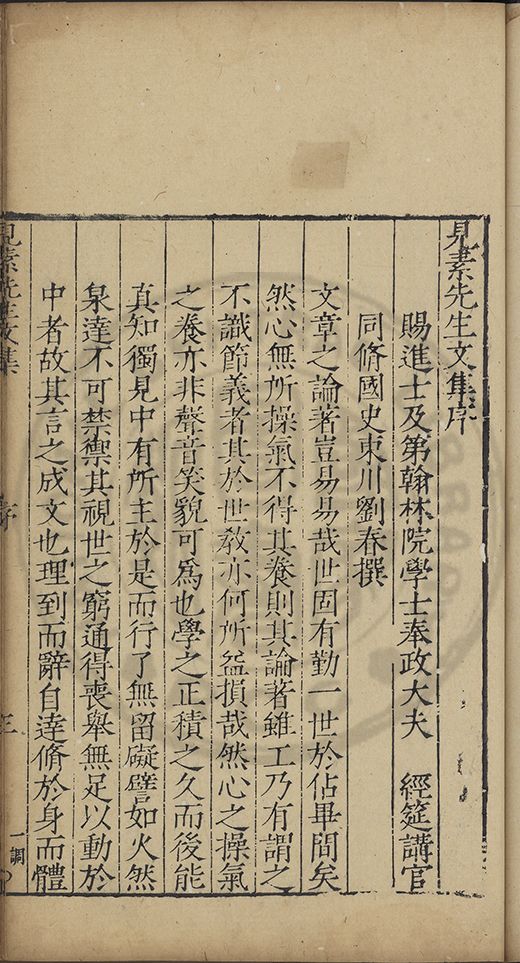 見素先生文集序
賜進士及第翰林院學士奉政大夫 經筵講官
同脩國史東川劉春撰
文章之論著豈易易哉世固有勤一世於佔畢間矣
然心無所操氣不得其養則其論著雖工乃有謂之
不識節義者其於世教亦何所益損哉然心之操氣
之養亦非聲音笑貌可爲也學之正積之久而後能
真知獨見中有所主於是而行了無留礙譬如火然
泉達不可禁禦其視世之窮通得喪舉無足以動於
中者故其言之成文也理到而辭自達脩於身而體
見素先生文集 序 三 一調